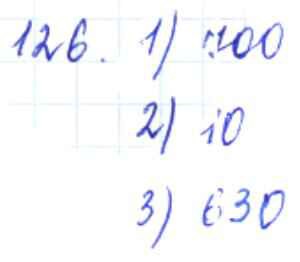 126. 1) 700
2) 10
3) 630